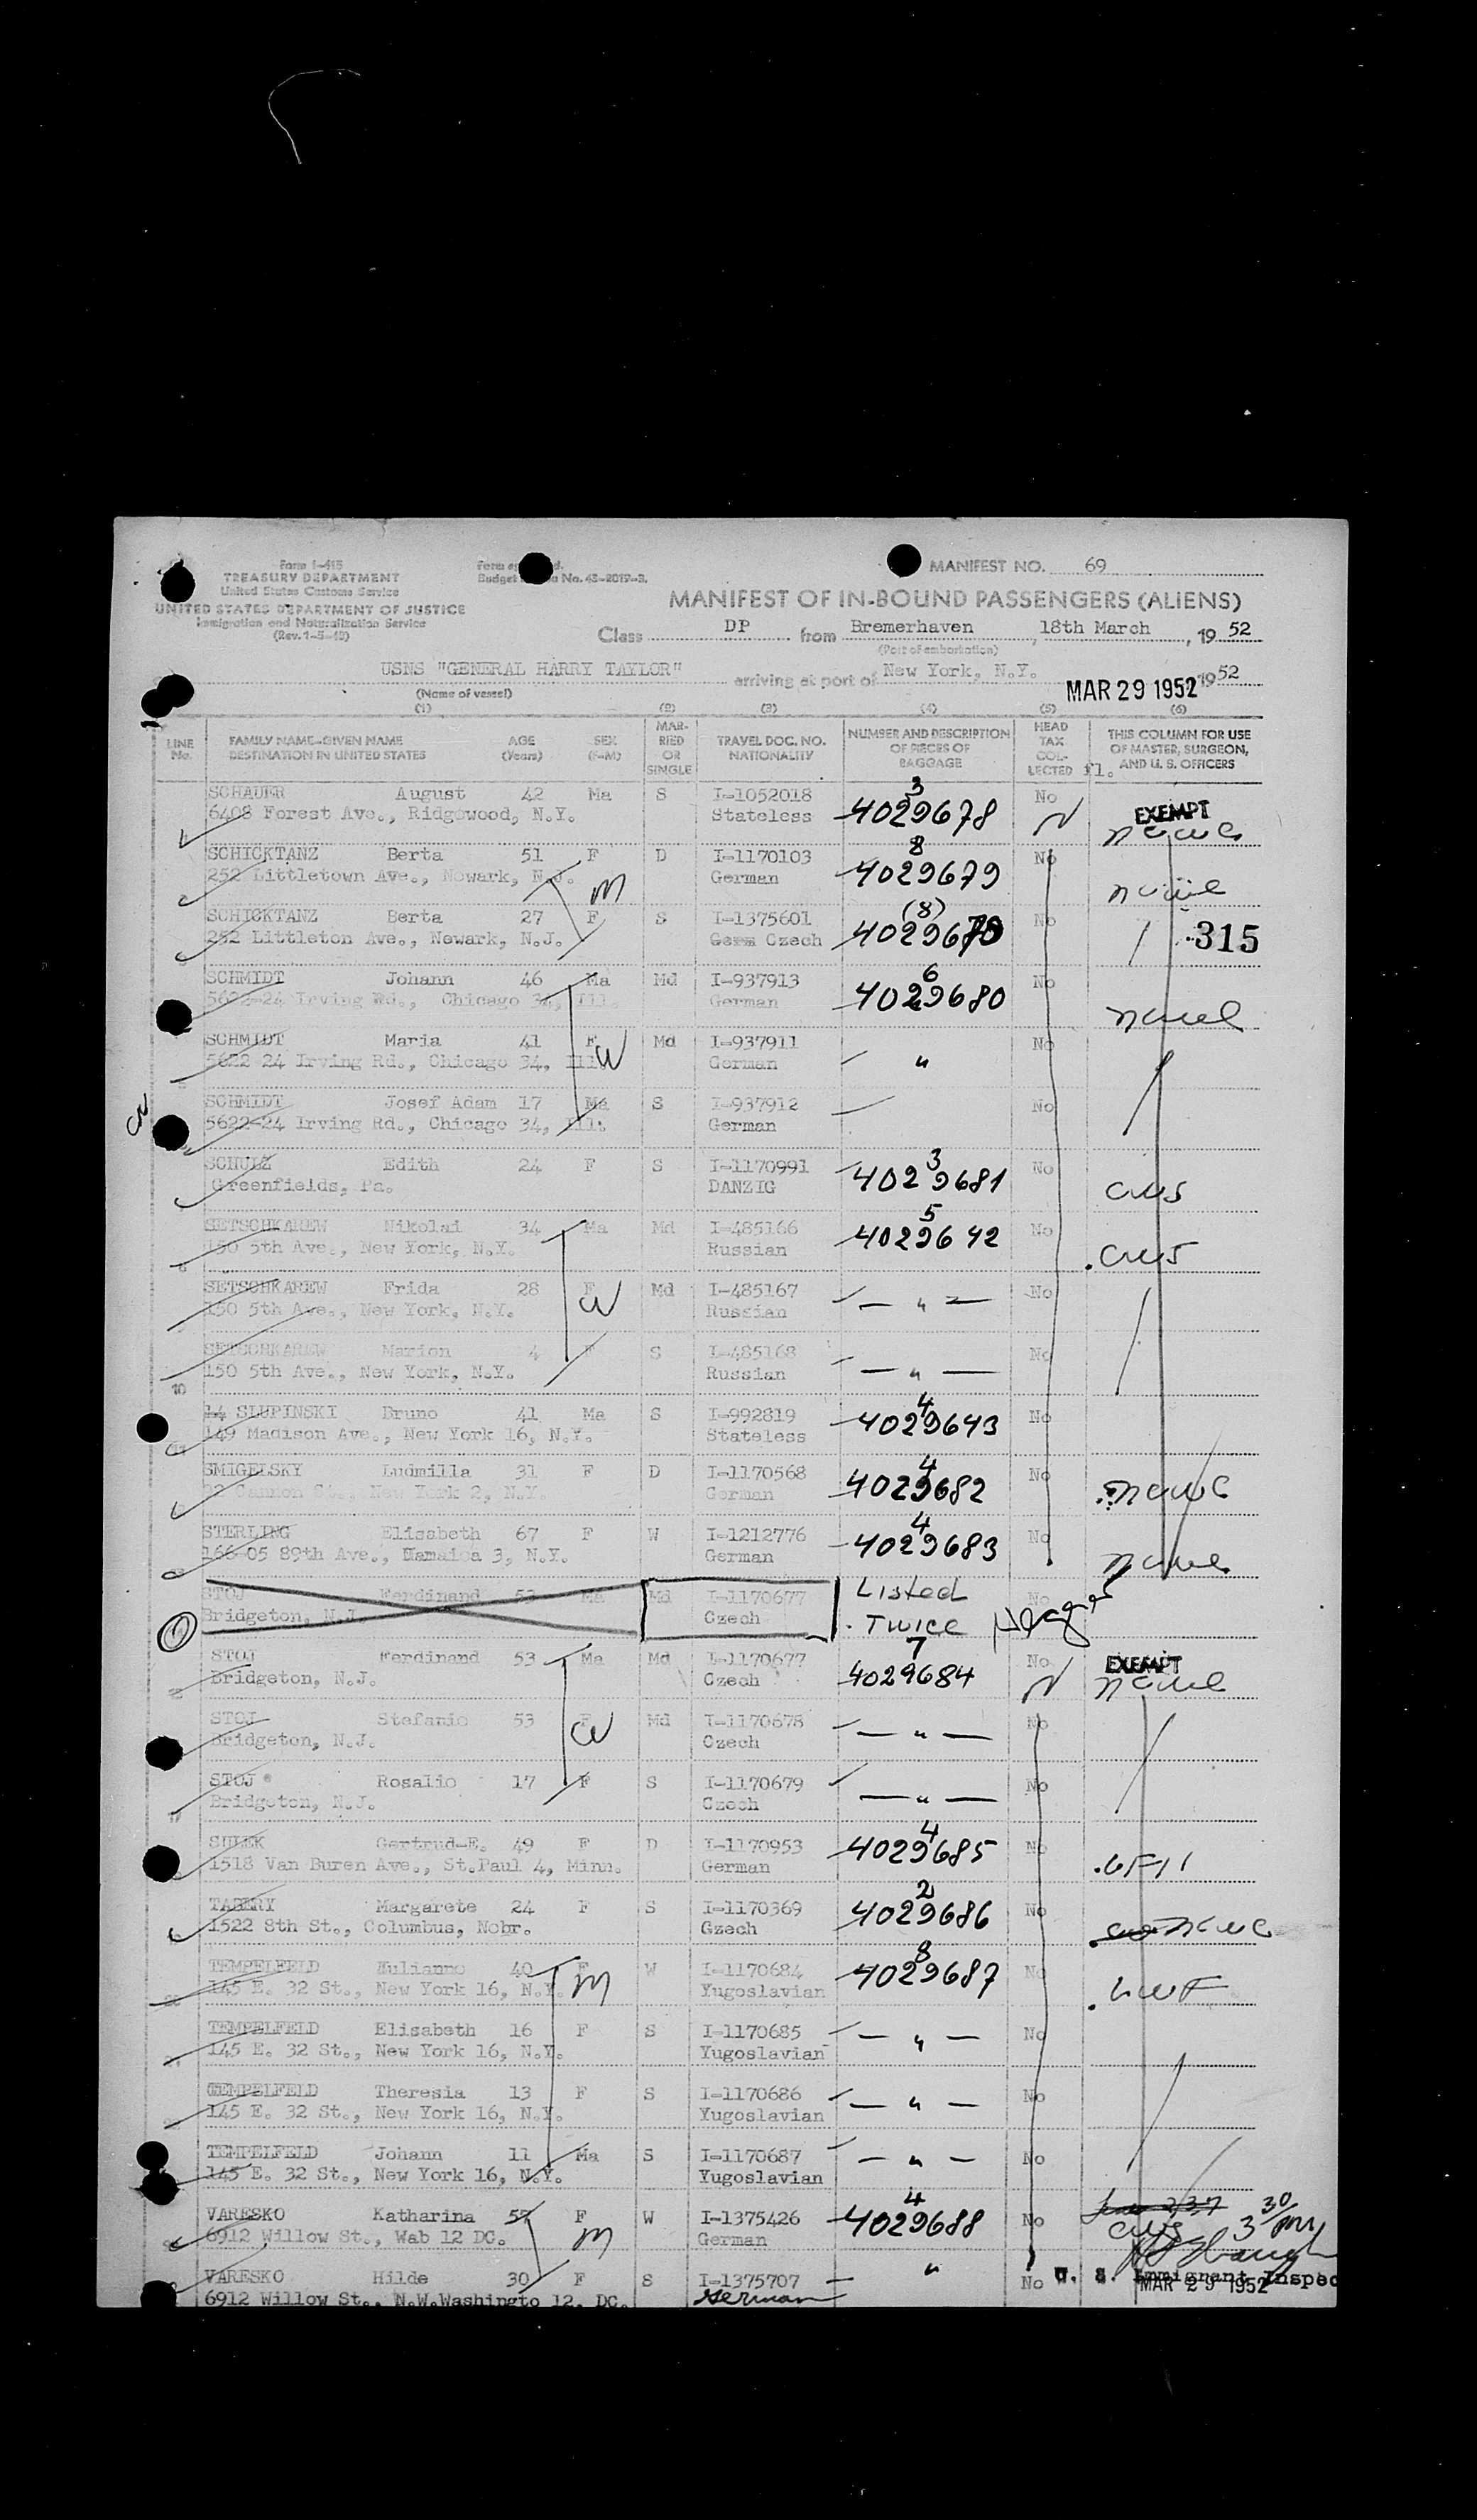 Form I-415
TREASURY DEPARTMENT
United States Customs Service
UNITED STATES DEPARTMENT OF JUSTICE
Immigration and Naturalization Service
(Rev. 1-5-49)
Budget No. 43-2019-3.
MANIFEST NO. 69
MANIFEST OF IN-BOUND PASSENGERS (ALIENS)
Class DP from Bremerhaven, 18th March, 19 52
(Port of embarkation)
USNS "GENERAL HARRY TAYLOR" arriving at port of New York, N.Y. MAR 29 1952 19 52
(Name of vessel)
(1) (2) (3) (4) (5) (6)
LINE No. FAMILY NAME-GIVEN NAME DESTINATION IN UNITED STATES AGE (Years) SEX (F-M) MARRIED OR SINGLE TRAVEL DOC. NO. NATIONALITY NUMBER AND DESCRIPTION OF PIECES OF BAGGAGE HEAD TAX COLLECTED fl. THIS COLUMN FOR USE OF MASTER, SURGEON, AND U. S. OFFICERS
SCHAUER August 42 Ma S I-1052018 3 No
6408 Forest Ave., Ridgewood, N.Y. Stateless 4029678 EXEMPT
SCHICKTANZ Berta 51 F D I-1170103 8 No
252 Littletown Ave., Newark, N.J. M German 4029679
SCHICKTANZ Berta 27 F S I-1375601 (8) No
252 Littleton Ave., Newark, N.J. Germ Czech 4029679 315
SCHMIDT Johann 46 Ma Md I-937913 6 No
5622-24 Irving Rd., Chicago 34, Ill. German 4029680
SCHMIDT Maria 41 F Md I-937911 No
5622 24 Irving Rd., Chicago 34, Ill. W German "
SCHMIDT Josef Adam 17 Ma S I-937912 No
5622-24 Irving Rd., Chicago 34, Ill. German
SCHULZ Edith 24 F S I-1170991 3 No
Greenfields, Pa. DANZIG 4029681 CWS
SETSCHKAREW Nikolai 34 Ma Md I-485166 5 No
150 5th Ave., New York, N.Y. Russian 4029642 CWS
SETSCHKAREW Frida 28 F Md I-485167 No
150 5th Ave., New York, N.Y. W Russian — " —
SETSCHKAREW Marion 4 F S I-485168 No
150 5th Ave., New York, N.Y. Russian — " —
10
14 SLUPINSKI Bruno 41 Ma S I-992819 4 No
149 Madison Ave., New York 16, N.Y. Stateless 4029643
SMIGELSKY Ludmilla 31 F D I-1170568 4 No
Cannon St., New York 2, N.Y. German 4029682
STERLING Elisabeth 67 F W I-1212776 4 No
166-05 89th Ave., Hamaica 3, N.Y. German 4029683
STOJ Ferdinand 53 Ma Md I-1170677 Listed No
Bridgeton, N.J. Czech Twice
STOJ Ferdinand 53 Ma Md I-1170677 7 No
Bridgeton, N.J. Czech 4029684 EXEMPT
STOJ Stefanie 53 F Md I-1170678 No
Bridgeton, N.J. W Czech — " —
STOJ Rosalie 17 F S I-1170679 No
Bridgeton, N.J. Czech — " —
SULEK Gertrud-E. 49 F D I-1170953 4 No
1518 Van Buren Ave., St.Paul 4, Minn. German 4029685
TABERY Margarete 24 F S I-1170369 2 No
1522 8th St., Columbus, Nebr. Czech 4029686
TEMPELFELD Hulianne 40 F W I-1170684 8 No
145 E. 32 St., New York 16, N.Y. M Yugoslavian 4029687
TEMPELFELD Elisabeth 16 F S I-1170685 No
145 E. 32 St., New York 16, N.Y. Yugoslavian — " —
TEMPELFELD Theresia 13 F S I-1170686 No
145 E. 32 St., New York 16, N.Y. Yugoslavian — " —
TEMPELFELD Johann 11 Ma S I-1170687 No
145 E. 32 St., New York 16, N.Y. Yugoslavian — " —
VARESKO Katharina 57 F W I-1375426 4 No
6912 Willow St., Wab 12 DC. M German 4029688 CWS 3 30 PM
VARESKO Hilde 30 F S I-1375707 " No U. S. Immigrant Inspec
6912 Willow St., N.W.Washingto 12, DC. German MAR 29 1952